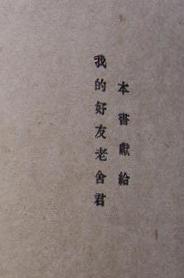 本書獻給
我的好友老舍君